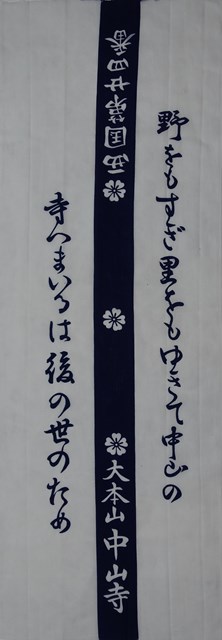 野をもすぎ里をもゆきて中山の
西国第廿四番
大本山中山寺
寺へまいるは後の世のため